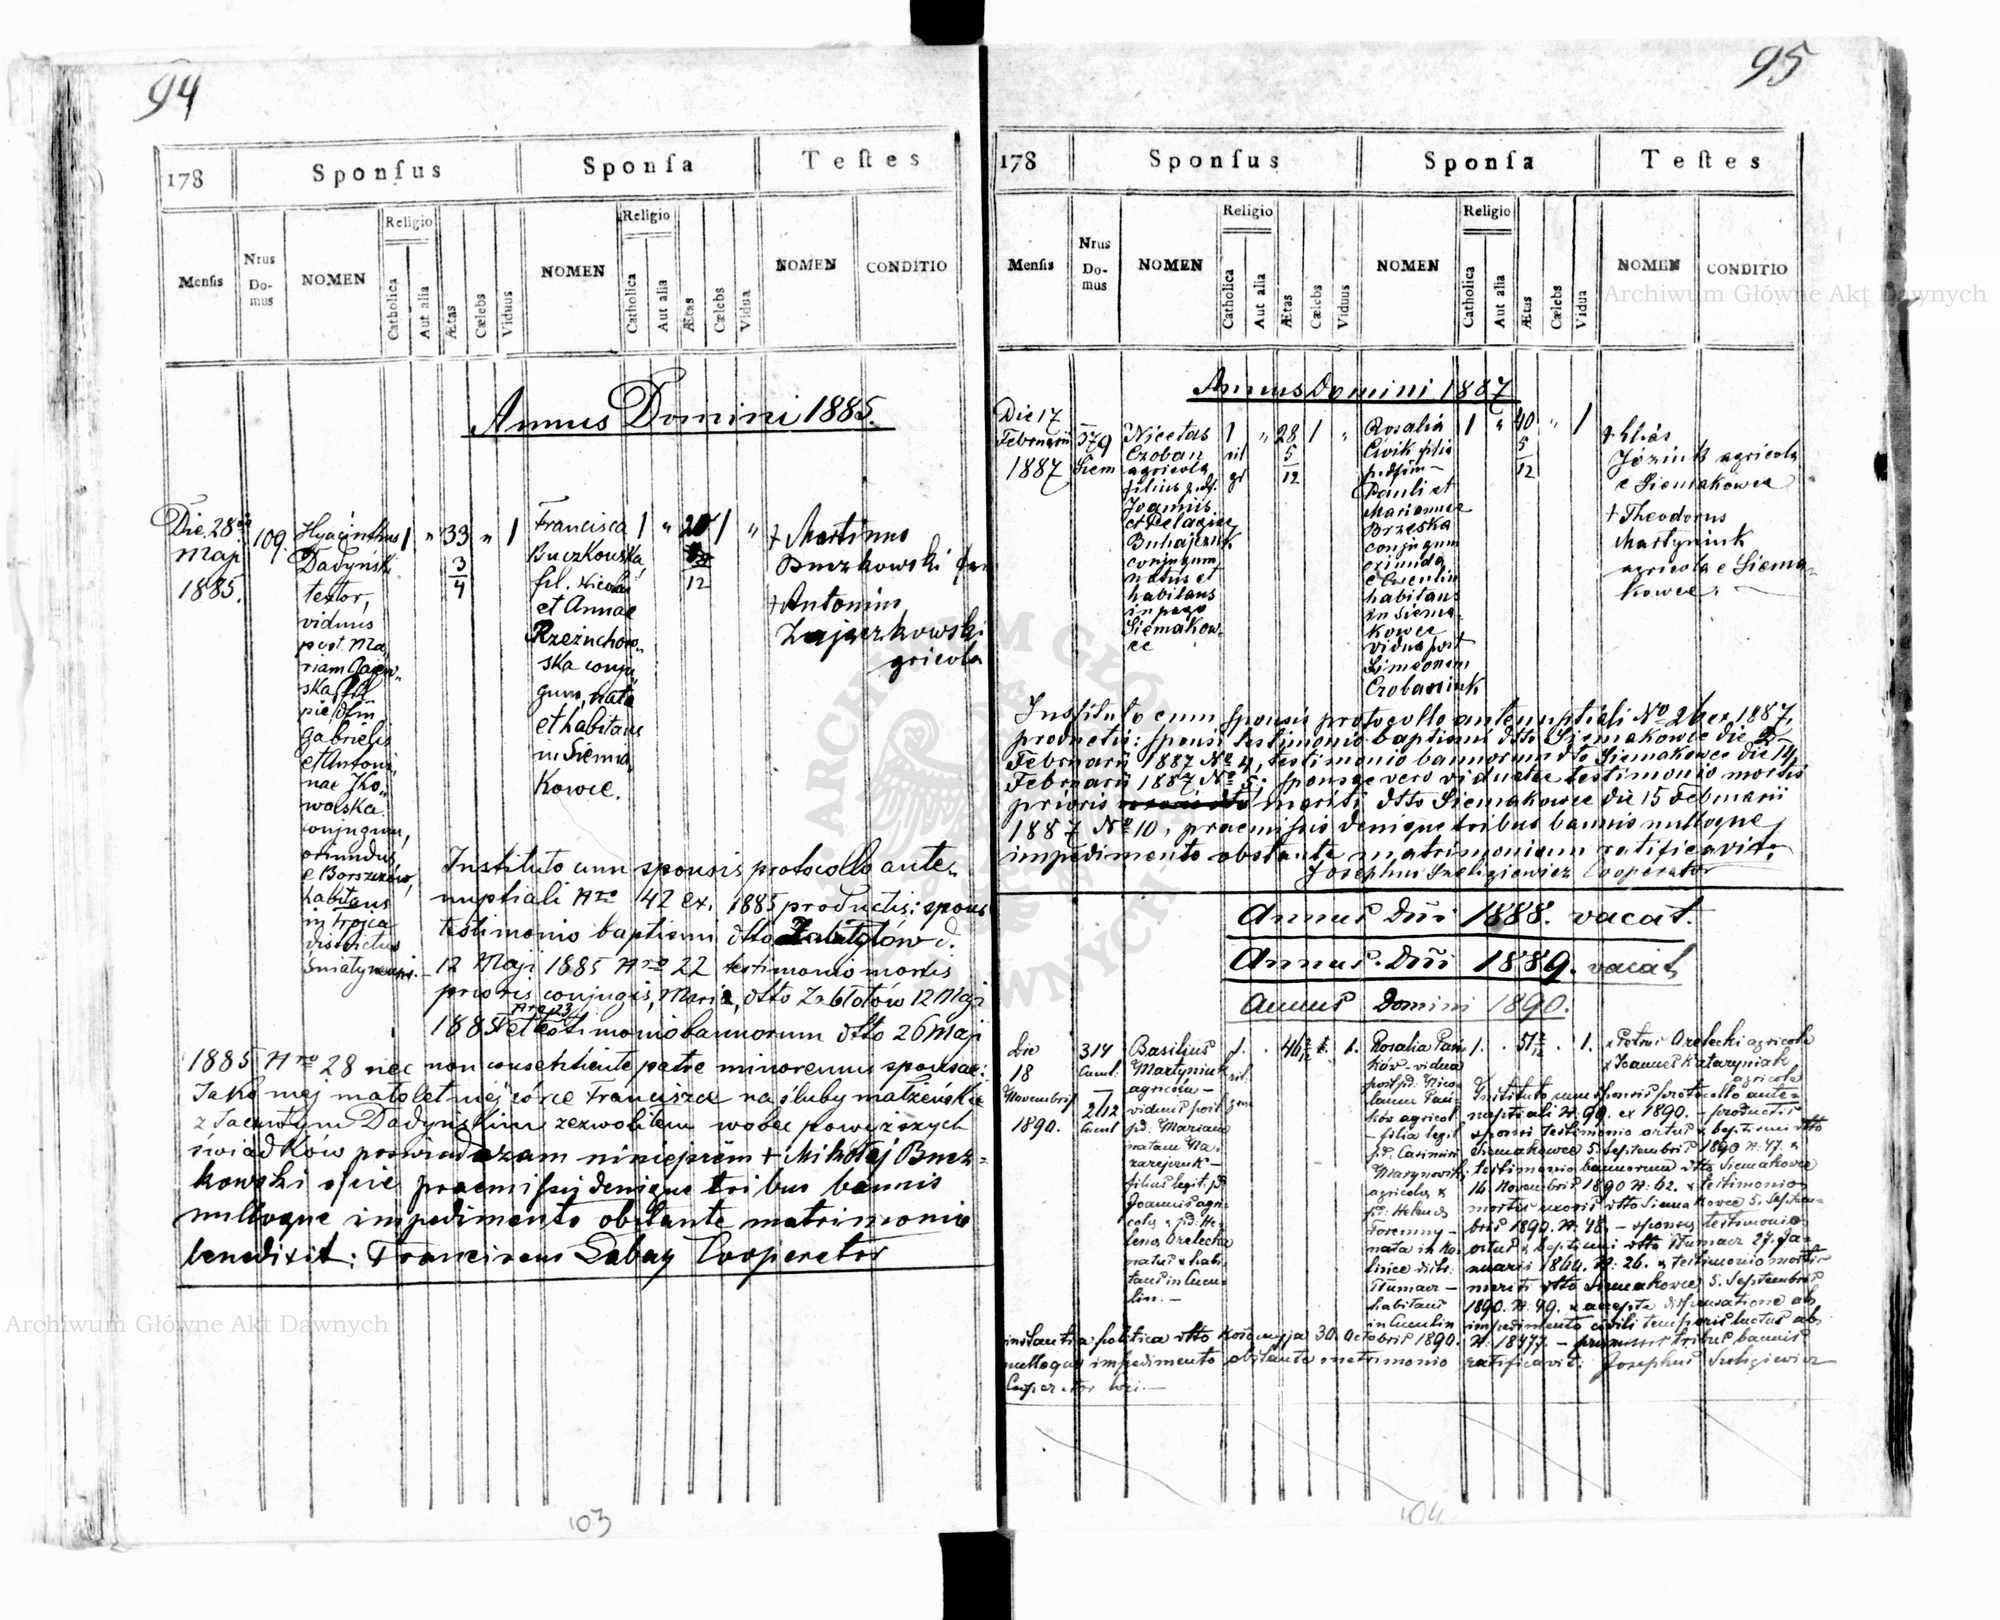 94
178
Sponſus
Sponſa
Teſtes
Menſis
Nrus Do-mus
NOMEN
Religio
Catholica
Aut alia
Ætas
Cælebs
Viduus
NOMEN
Religio
Catholica
Aut alia
Ætas
Cælebs
Vidua
NOMEN
CONDITIO
Annus Domini 1885.
Die 28
Maji
1885.
109.
Hyacinthus
Dadyński
textor,
viduus
post Ma
riam
ska fil
Gabrielis
et Antoni
nae Ko
walska
conjugum,
oriundus
e Borszczów,
habitans
in Trojca
districtus
Śniatynensis.
1 " 33 " 1
3
4
Francisca
Buczkowska,
fil. Nicolai
et Annae
Rzeżuchow
ska conju
gum, nata
et habitans
in Siema
kowce.
1 " 20 1 "
12
† Martinus
Buczkowski
† Antonius
Zajaczkowski
gricola
Instituto cum sponsis protocollo ante
nuptiali Nro 42 ex. 1885 productis: sponsi
testimonio baptismi dtto Zabłotów d.
12 Maji 1885 Nro 22 testimonio mortis
prioris conjugis, Maria, dtto Zabłotów 12 Maji
1885 Nro 23 et testimonio bannorum dtto 26 Maji
1885 Nro 28 nec non consentiente patre minorennis sponsae:
Jako mej małoletniej córce Franciszce na śluby małżeńskie
z Jacentym Dadyńskim zezwoliłem wobec powyższych
świadków poświadczam niniejszem + Mikołaj Bucz-
kowski ojciec praemissis denique tribus bannis
nulloque impedimento obstante matrimonio
benedixit: Franciscus Łabay Cooperator
103
95
178
Sponſus
Sponſa
Teſtes
Menſis
Nrus Do-mus
NOMEN
Religio
Catholica
Aut alia
Ætas
Cælebs
Viduus
NOMEN
Religio
Catholica
Aut alia
Ætas
Cælebs
Vidua
NOMEN
CONDITIO
Annus Domini 1887
Die 17
Februarii
1887
379
Siem
Nicetas
Czoban
agricola
filius
Joannis
et Pelagiae
Buhajczuk
conjugum
natus et
habitans
in pago
Siemakow
ce
1 " 28 1 "
rit
gr
5
12
Rosalia
Civik filia
Pauli et
Mariannae
Brzeska
conjugum
oriunda
habitans
in Siema
kowce
vidua post
Simeonem
Czobaniuk
1 " 40 " 1
5
12
† Elias
Józiuk agricola
e Siemakowce
† Theodorus
Martyniuk
agricola e Siema-
kowce.
Instituto cum sponsis protocollo antenuptiali No 26 ex 1887,
productis: sponsi testimonio baptismi dtto Siemakowce die 2
Februarii 1887 No 4, testimonio bannorum dtto Siemakowce die 14
Februarii 1887 No 5; sponsae vero viduatae testimonio mortis
prioris mariti dtto Siemakowce die 15 Februarii
1887 No 10, praemissis denique tribus bannis nulloque
impedimento obstante matrimonium ratificavit.
Josephus Szeligiewicz Cooperator
Annus Dni 1888. vacat.
Annus Dni 1889. vacat
Annus Domini 1890.
Die
18
Novembris
1890.
314
212
Basilius
Martyniuk
agricola –
viduus post
p.d. Mariam
natam Na
zarejczuk –
filius legit. p.d.
Joannis agri
colae & p.d. He
lenae Orelecka
natus & habi
tans in Cucu
lin. –
1. . 46 1.
Rosalia Pań
ków – vidua
post p.d. Nico
laum Pań
ków agricol
– filia legit
p.d. Casimiri
agricolae &
p.d. Helenae
nata in
habitans
in Cuculin
1. . 51 . 1.
x Petrus Orelecki agricola
x Joannes Kataryniak
agricola
Instituto cum sponsis protocollo ante-
nuptiali N: 99. ex 1890. – productis
sponsi testimonio ortus & baptismi dtto
Siemakowce 5. Septembris 1890 N: 47. &
testimonio bannorum dtto Siemakowce
16. Novembris 1890 N: 62. & testimonio
mortis uxoris dtto Siemakowce 5. Septem-
bris 1890. N: 48. – sponsae testimonio
ortus & baptismi dtto Tłumacz 27. Ja-
nuarii 1864. N: 26. & testimonio mortis
mariti dtto Siemakowce 5. Septembris
1890. N: 49. & accepta dispensatione ab
impedimento civili temporis luctus ab
instantia politica dtto Kołomyja 30. Octobris 1890. N: 18477. – praemissis tribus bannis
nulloque impedimento obstante matrimonio ratificavit: Josephus Szeligiewicz
Cooperator loci. –
104
Archiwum Główne Akt Dawnych
Archiwum Główne Akt Dawnych